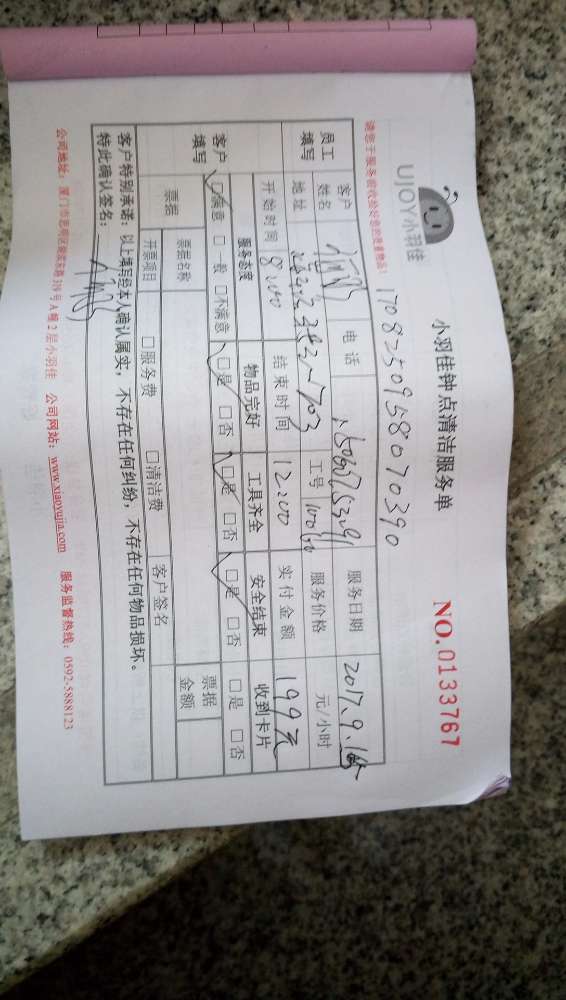 UJOY小羽佳
小羽佳钟点清洁服务单
NO.0133767
1708250958070390
请您于服务前收拾好您的贵重物品!
员工填写
客户姓名
电话
服务日期 2017.9.16
地址
工号
服务价格 元/小时
开始时间 8:00 结束时间 12:00 实付金额 199元
客户填写
服务态度 物品完好 工具齐全 安全结束 收到卡片
□满意 □一般 □不满意 □是 □否 □是 □否 □是 □否 □是 □否
票据
票据名称
票据金额
开票项目 □服务费 □清洁费 客户签名
客户特别承诺:以上填写经本人确认属实,不存在任何纠纷,不存在任何物品损坏。
特此确认签名:
公司地址:厦门市思明区 319号A幢2层小羽佳 公司网站:www.xiaoyujia.com 服务监督热线:0592-5888123